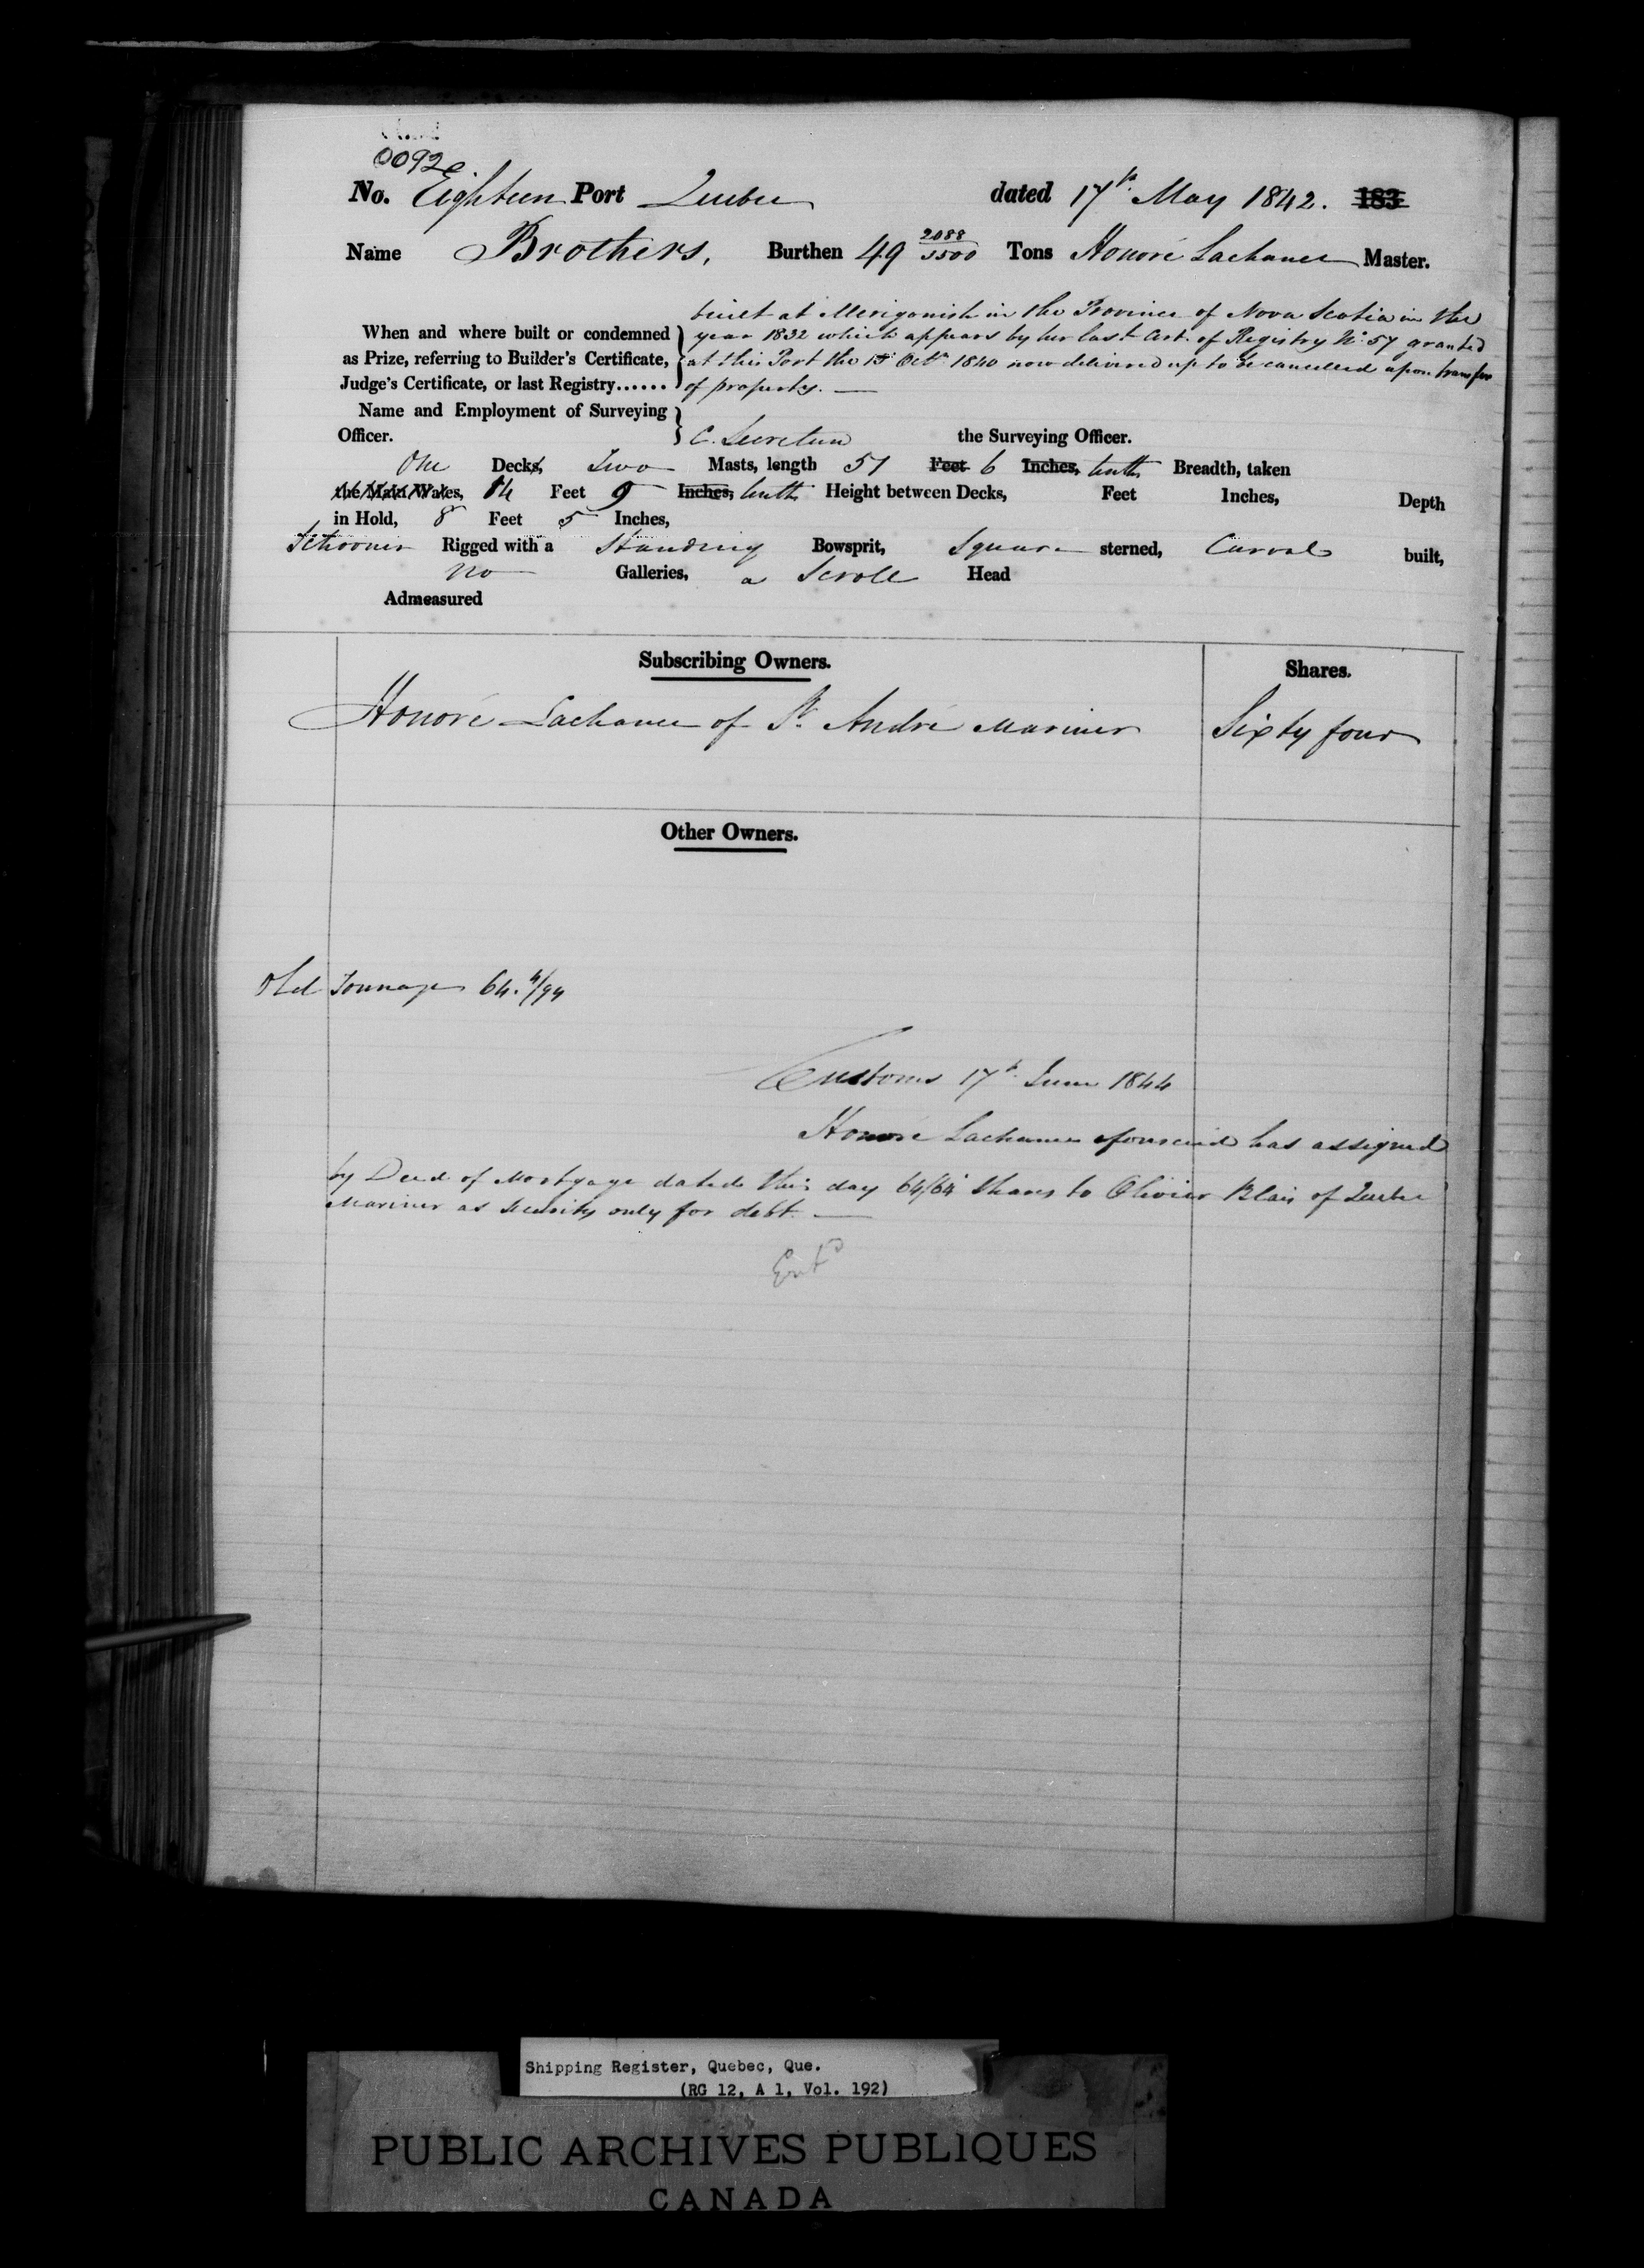 0092
No. Eighteen Port Quebec dated 17th May 1842. 183
Name Brothers, Burthen 49 2088/3500 Tons Honoré Lachance Master.
built at Merigomish in the Province of Nova Scotia in the
When and where built or condemned year 1832 which appears by her last Cert. of Registry No. 57 granted
as Prize, referring to Builder's Certificate, at this Port the Octr 1840 now delivered up to be cancelled upon transfer
Judge's Certificate, or last Registry...... of property. —
Name and Employment of Surveying
Officer. C. Secretan the Surveying Officer.
One Decks, Two Masts, length 51 Feet 6 Inches, tenths Breadth, taken
the Main Wales, 14 Feet 9 Inches, tenths Height between Decks, Feet Inches, Depth
in Hold, 8 Feet 5 Inches,
Schooner Rigged with a Standing Bowsprit, Square sterned, Carvel built,
no Galleries, a Scroll Head
Admeasured
Subscribing Owners. Shares.
Honoré Lachance of St. André Mariner Sixty four
Other Owners.
Old Tonnage 64. 4/94
Customs 17th June 1844
Honoré Lachance aforesaid has assigned
by Deed of Mortgage dated this day 64/64 Shares to Olivier Blais of Quebec
Mariner as security only for debt. —
Entd
Shipping Register, Quebec, Que.
(RG 12, A 1, Vol. 192)
PUBLIC ARCHIVES PUBLIQUES
CANADA